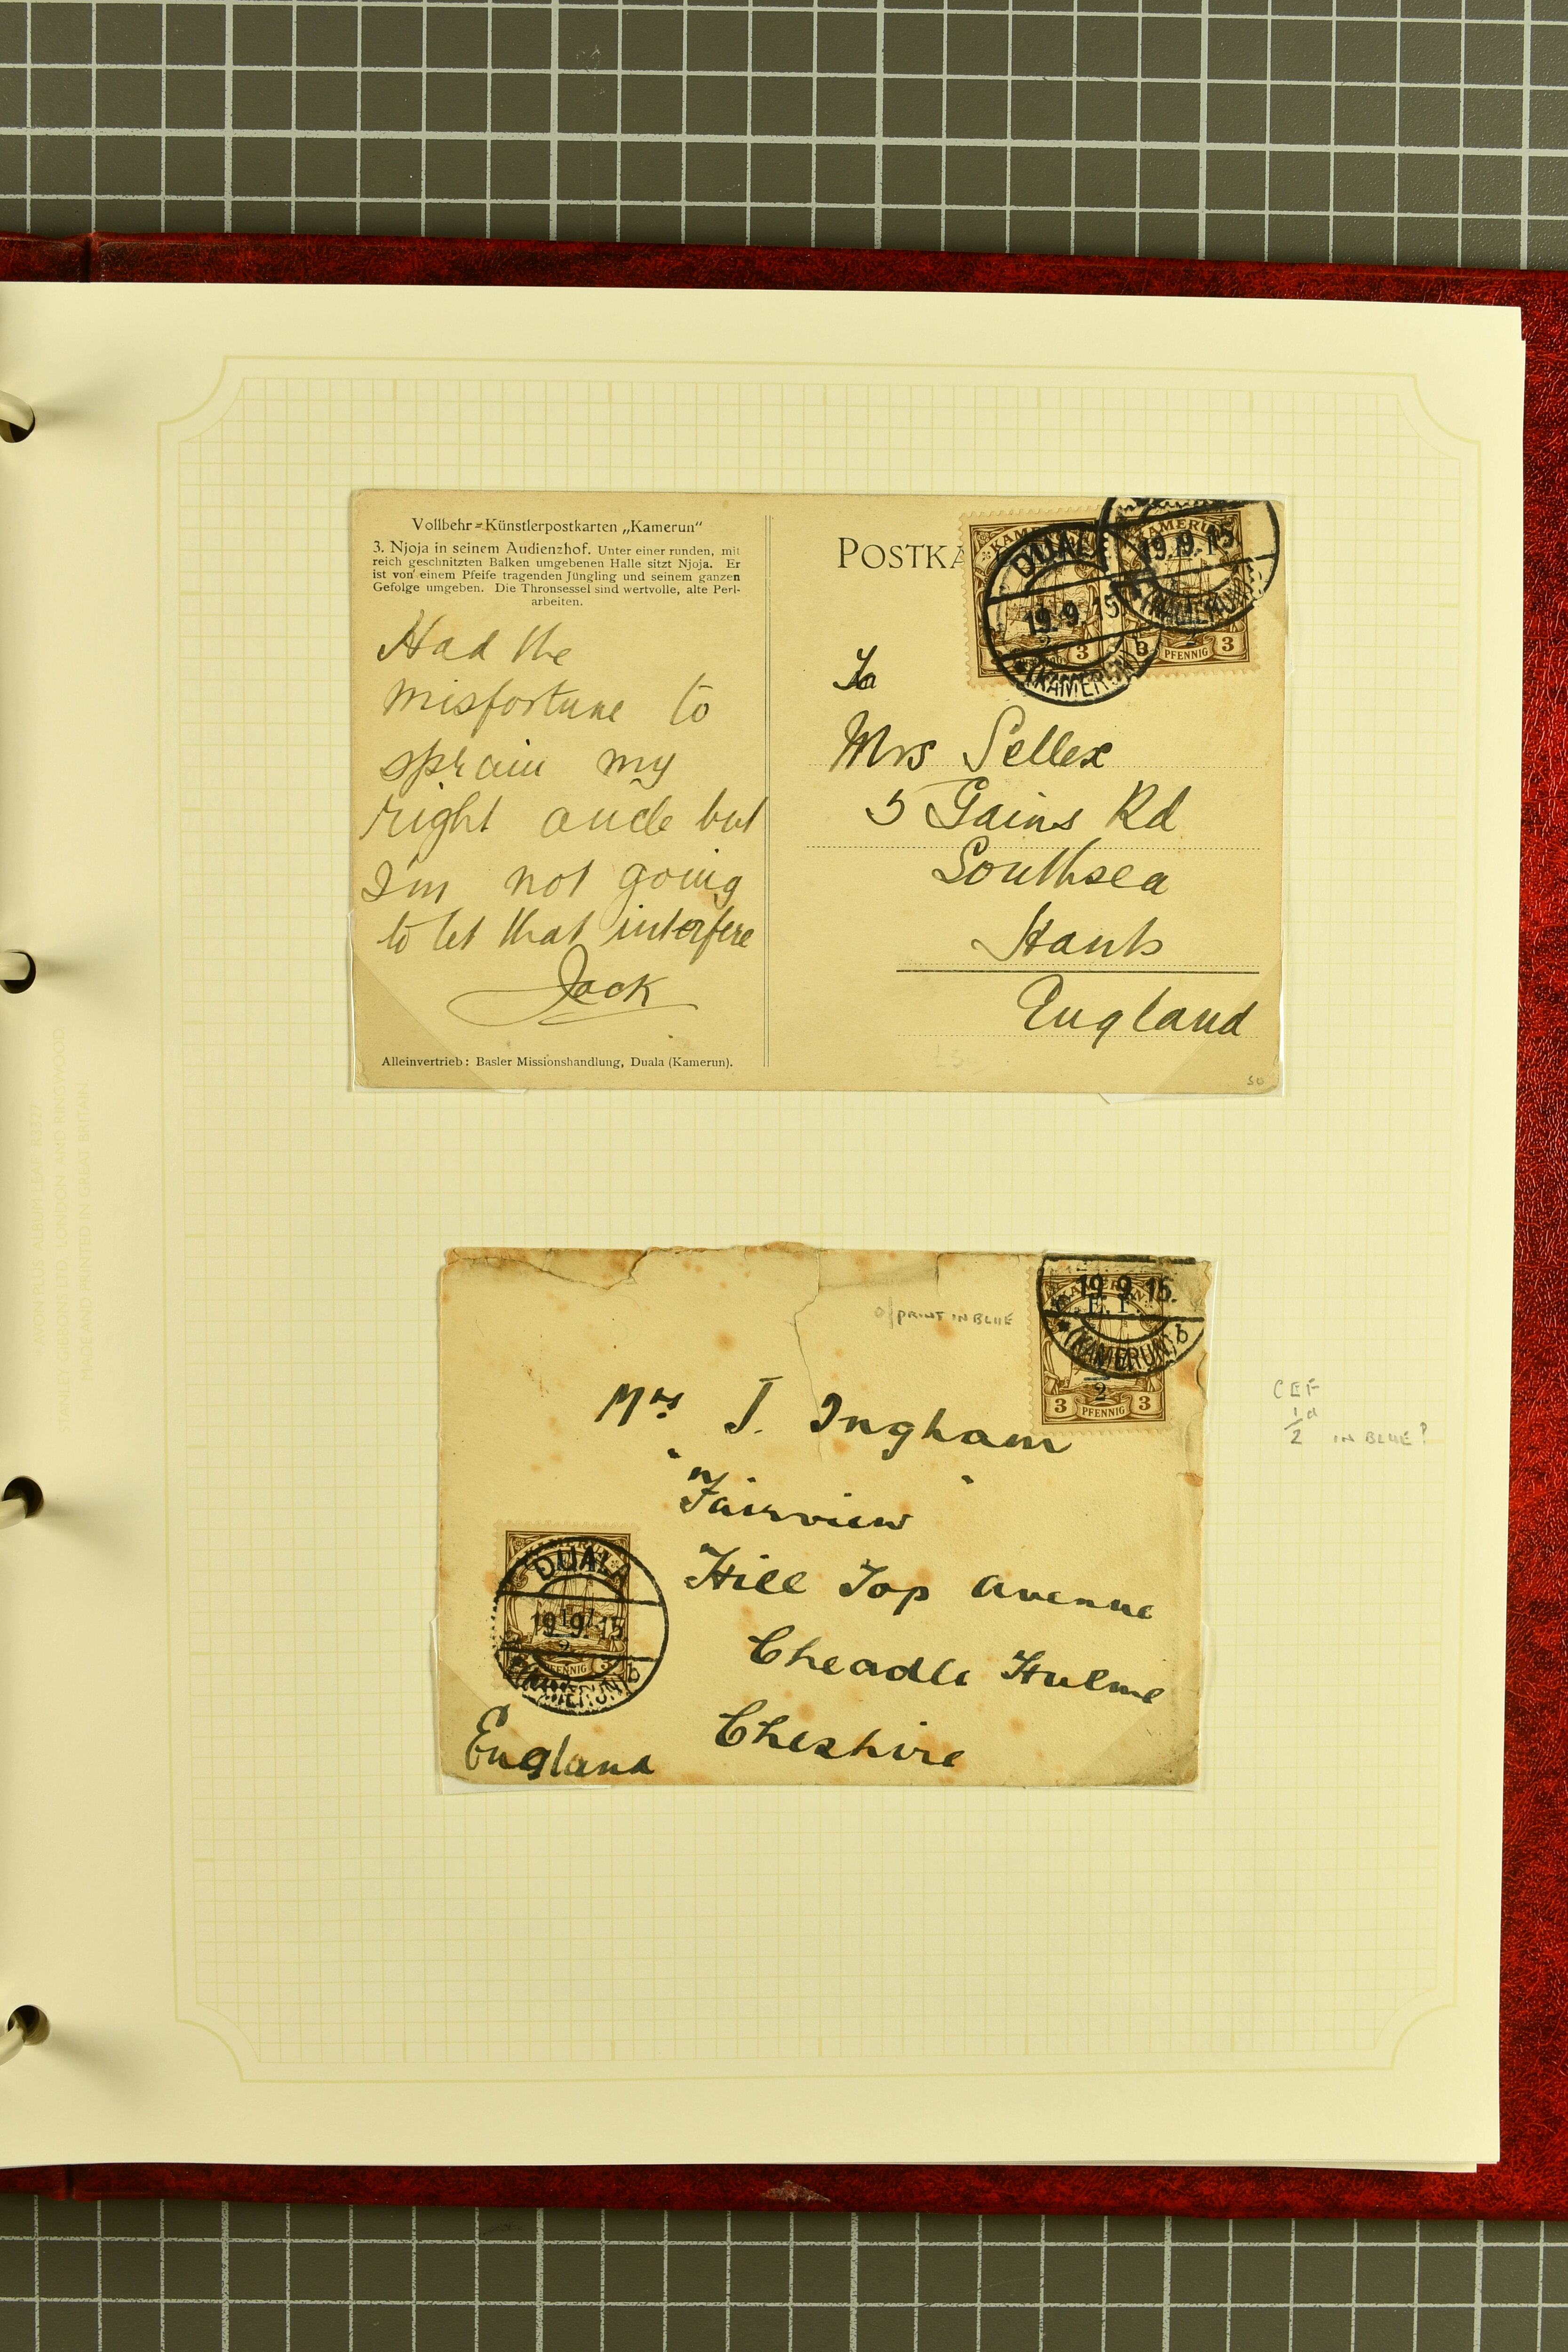 Vollbehr-Künstlerpostkarten „Kamerun“
3. Njoja in seinem Audienzhof. Unter einer runden, mit
reich geschnitzten Balken umgebenen Halle sitzt Njoja. Er
ist von einem Pfeife tragenden Jüngling und seinem ganzen
Gefolge umgeben. Die Thronsessel sind wertvolle, alte Perl-
arbeiten.
Had the
misfortune to
sprain my
right ancle but
I'm not going
to let that interfere
Jack
Alleinvertrieb: Basler Missionshandlung, Duala (Kamerun).
POSTKA
KAMERUN
DUALA
19.9.15
(KAMERUN) b
3
19.9.15
(KAMERUN)
PFENNIG 3
To
Mrs Sellex
5 Gains Rd
Southsea
Hants
England
50
O/PRINT IN BLUE
19.9.15.
(KAMERUN) b
½
3 PFENNIG 3
Mrs J. Ingham
"Fairview"
Hill Top Avenue
Cheadle Hulme
Cheshire
DUALA
19.9.15
(KAMERUN) b
PFENNIG 3
England
CEF
½d IN BLUE?
AVON PLUS ALBUM LEAF R1377
STANLEY GIBBONS LTD LONDON AND RINGWOOD
MADE AND PRINTED IN GREAT BRITAIN